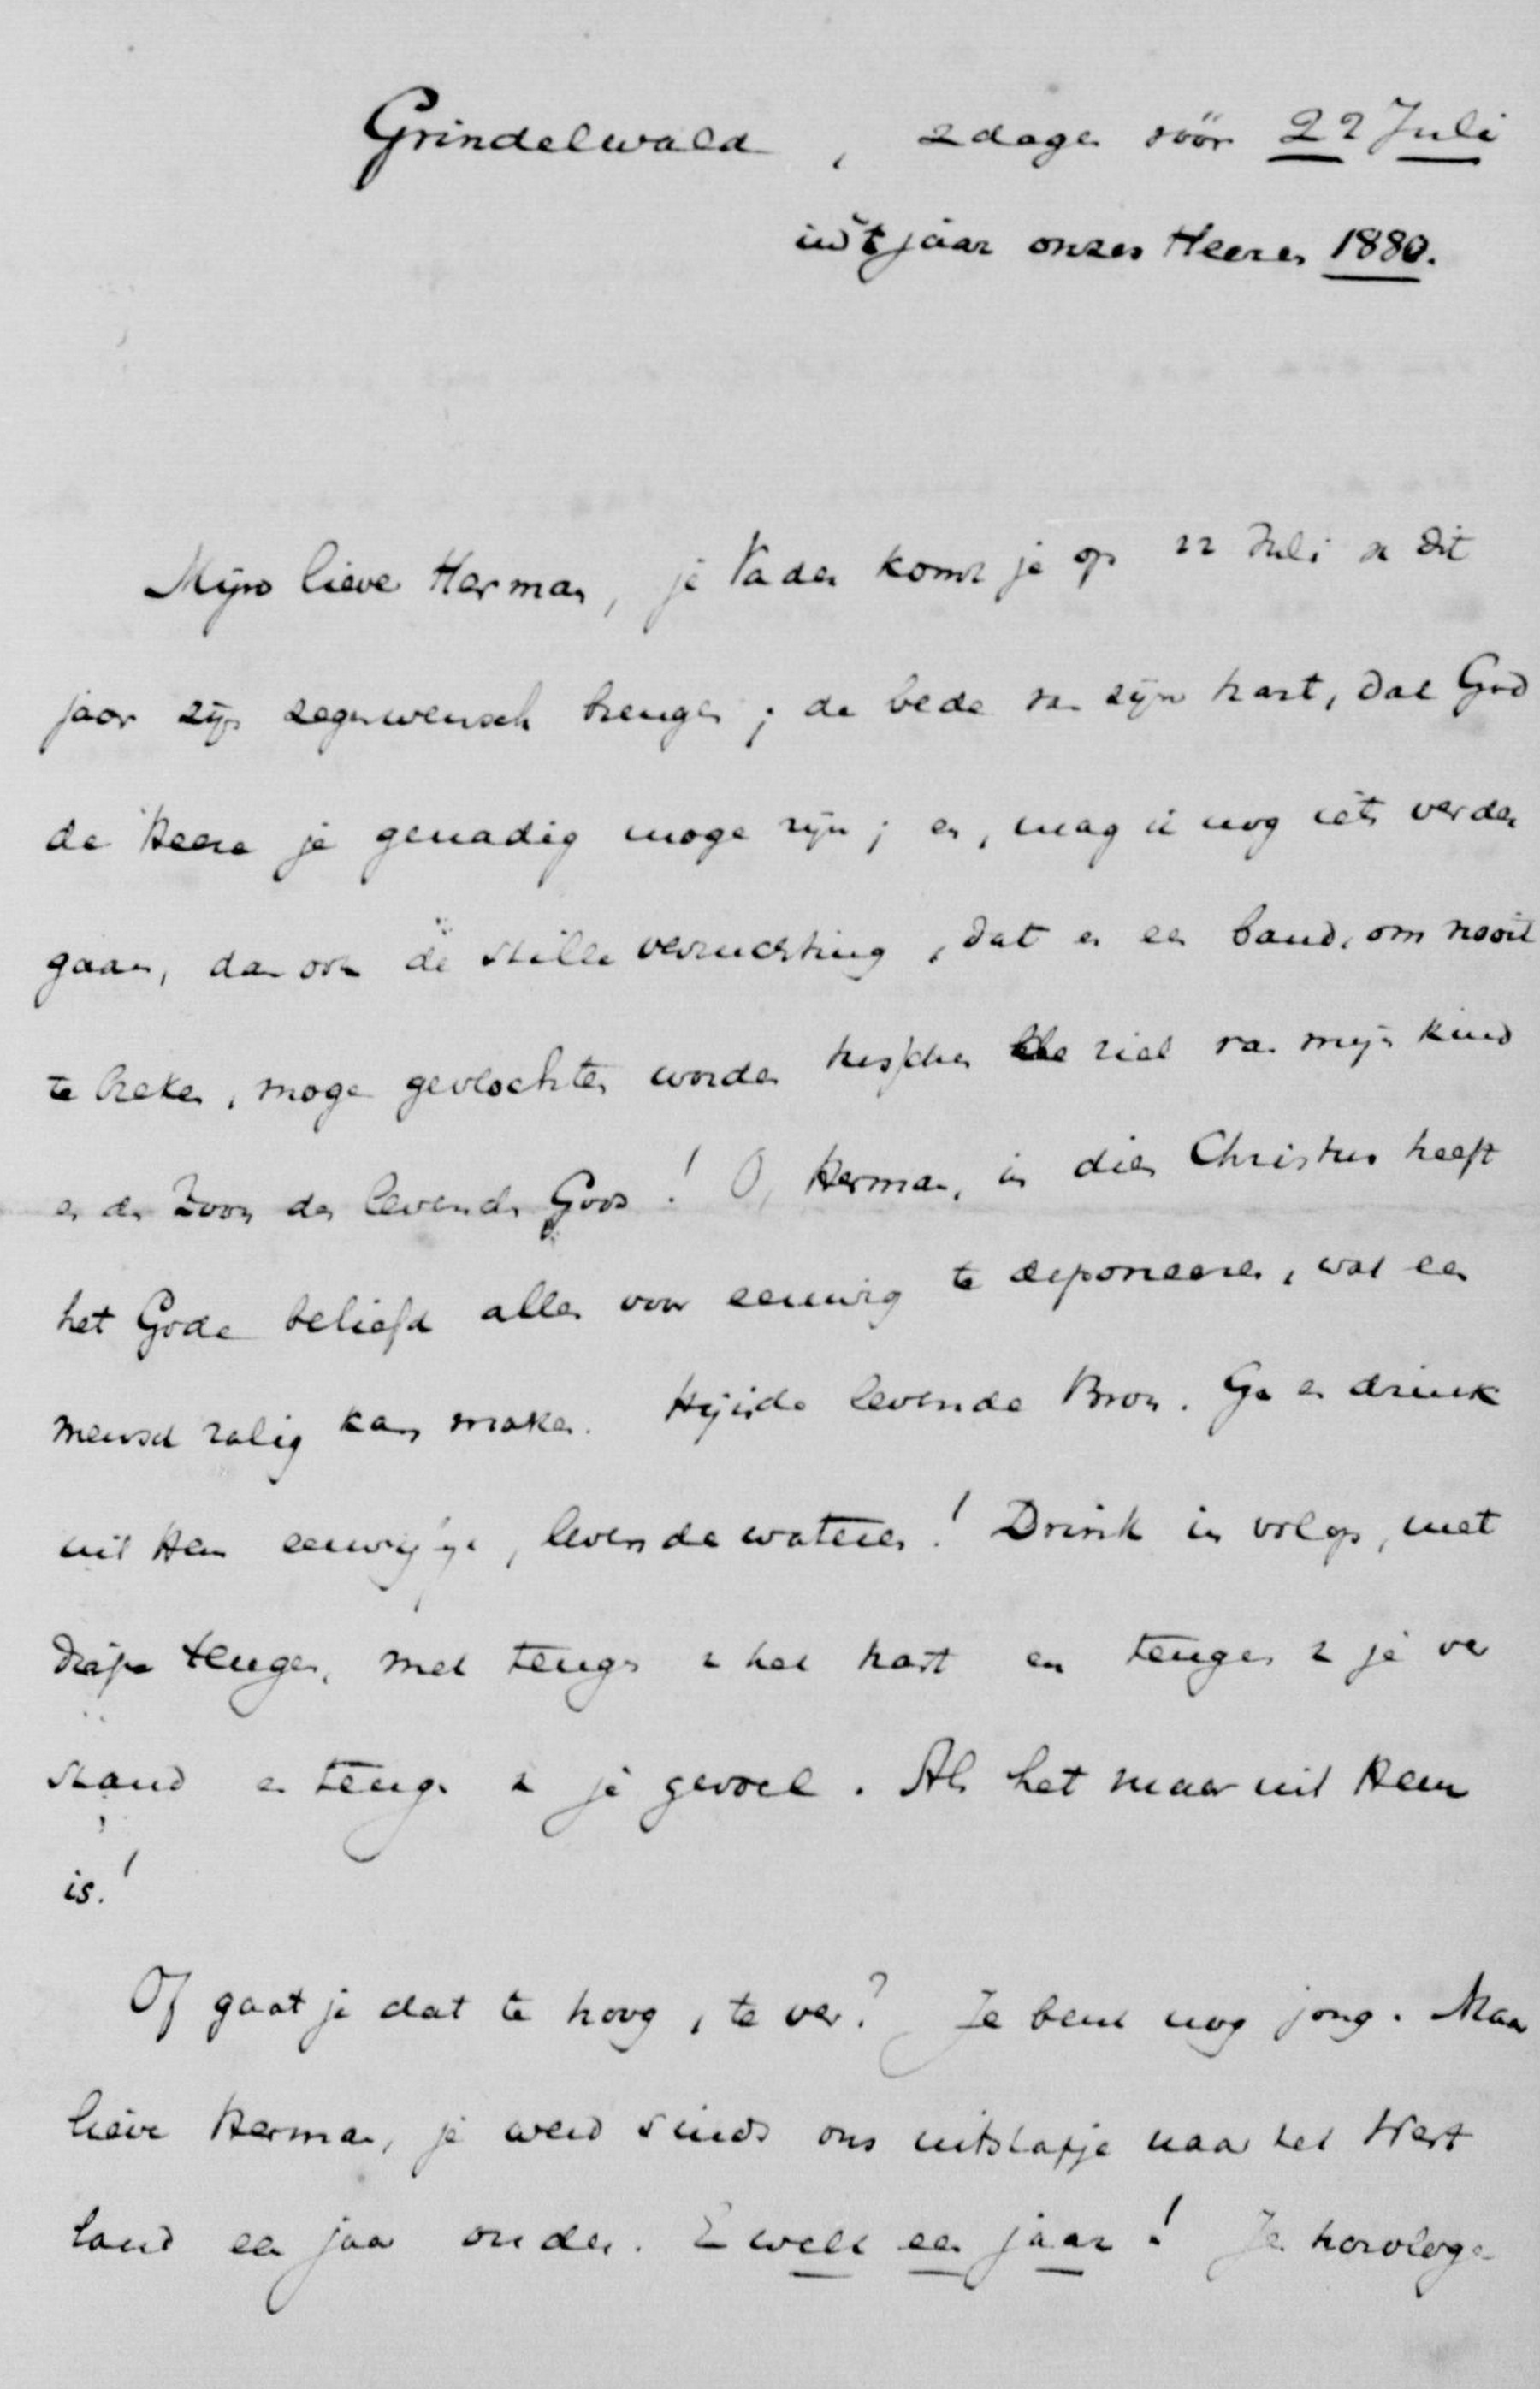 Grindelwald, 2 dagen vóór 22 Juli
in 't jaar onzes Heeren 1880.
Mijn lieve Herman, je Vader komt je op 22 Juli v dit
jaar zijn zegenwensch brengen; de bede van zijn hart, dat God
de Heere je genadig moge zijn; en, mag ik nog iets verder
gaan, dan ook de stille verzuchting, dat er een band, om nooit
te breken, moge gevlochten worden tusschen de ziel van mijn kind
en den Zoon des levenden Gods! O, Herman, in dien Christus heeft
het Gode beliefd alles voor eeuwig te deponeeren, wat een
mensch zalig kan maken. Hij is de levende Bron. Ga en drink
uit Hem eeuwige, levende wateren! Drink in volop, met
diepe teugen, met teugen v het hart en teugen v je ver
stand en teugen v je gevoel. Als het maar uit Hem
is!
Of gaat je dat te hoog, te ver? Je bent nog jong. Maar
lieve Herman, je werd sinds ons uitstapje naar het West
land een jaar ouder. En welk een jaar! Je horloge